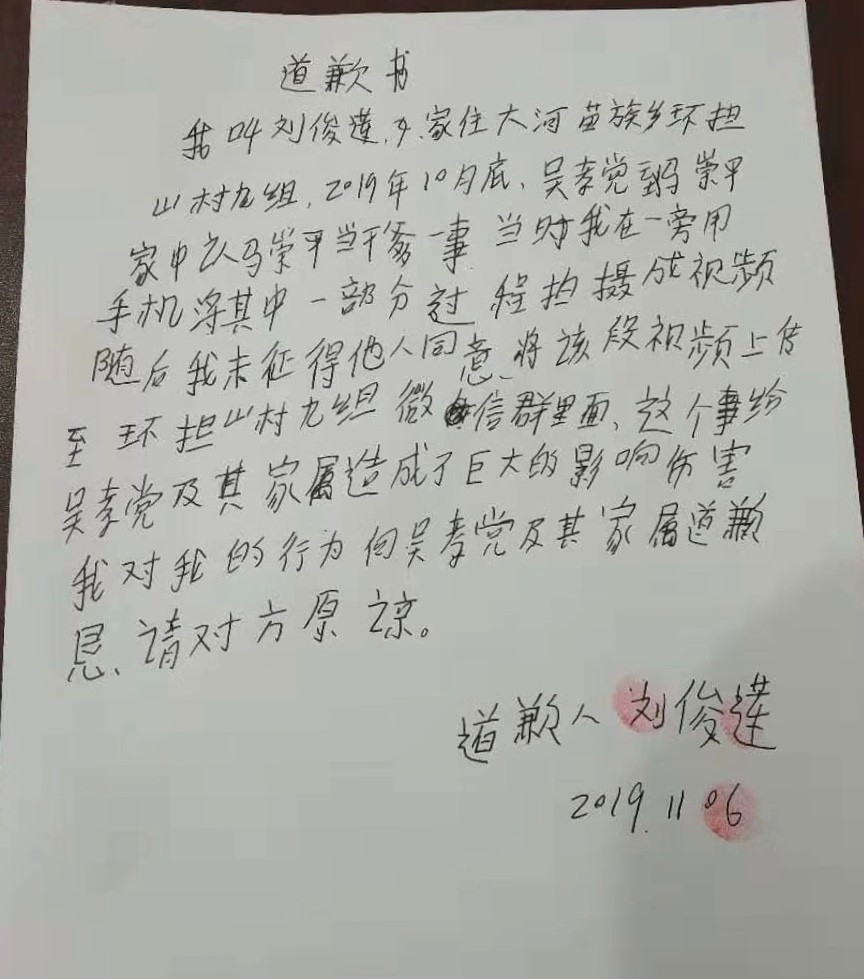 道歉书
我叫刘俊莲,女,家住大河苗族乡环担
山村九组,2019年10月底、吴孝党到马崇平
家中认马崇平当干爹一事 当时我在一旁用
手机将其中一部分过程拍摄成视频
随后我未征得他人同意、将该段视频上传
至环担山村九组微信群里面、这个事给
吴孝党及其家属造成了巨大的影响伤害
我对我的行为向吴孝党及其家属道歉
恳、请对方原谅。
道歉人 刘俊莲
2019.11 06